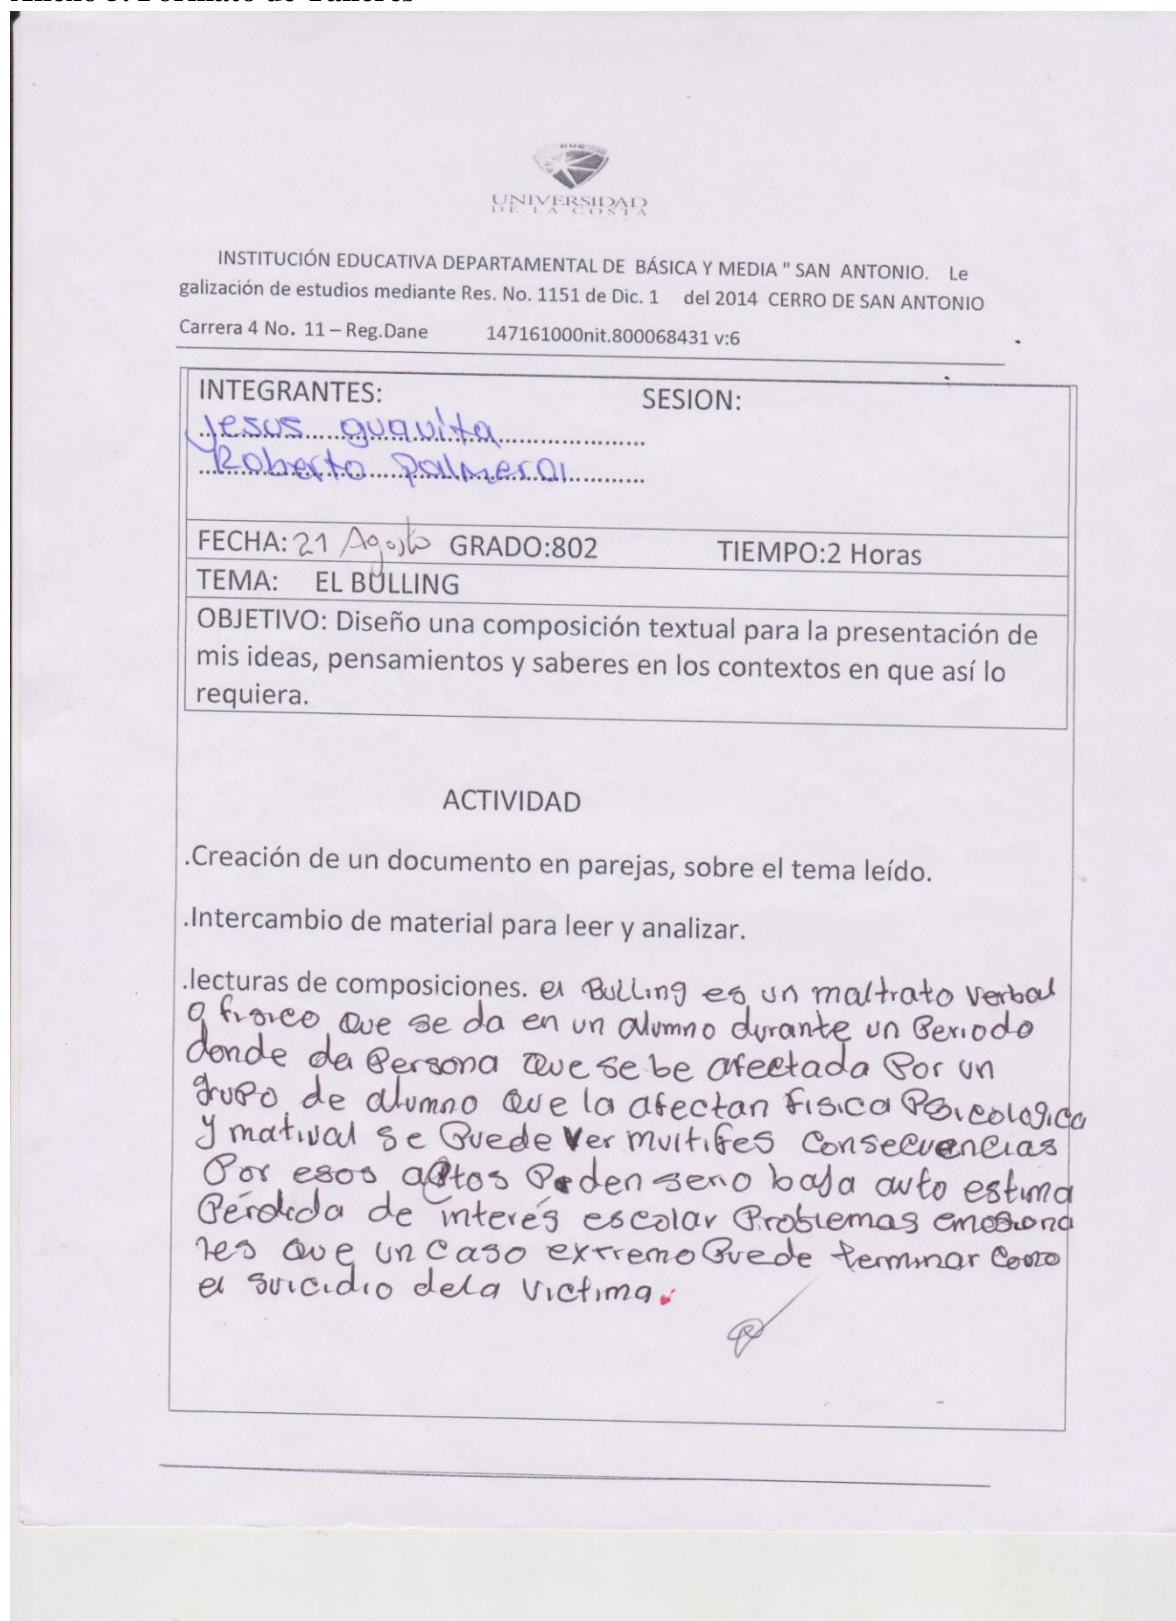 Anexo 3. Formato de Talleres
CUC
UNIVERSIDAD
DE LA COSTA
INSTITUCIÓN EDUCATIVA DEPARTAMENTAL DE BÁSICA Y MEDIA " SAN ANTONIO. Le
galización de estudios mediante Res. No. 1151 de Dic. 1 del 2014 CERRO DE SAN ANTONIO
Carrera 4 No. 11 – Reg.Dane 147161000nit.800068431 v:6
INTEGRANTES: SESION:
Jesus guquita
Roberto palmera
FECHA: 21 Agosto GRADO:802 TIEMPO:2 Horas
TEMA: EL BULLING
OBJETIVO: Diseño una composición textual para la presentación de
mis ideas, pensamientos y saberes en los contextos en que así lo
requiera.
ACTIVIDAD
.Creación de un documento en parejas, sobre el tema leído.
.Intercambio de material para leer y analizar.
.lecturas de composiciones. el Bulling es un maltrato verbal
o fisico que se da en un alumno durante un Periodo
donde da Persona que se be afectada Por un
grupo de alumno que la afectan fisica Psicologica
y se Puede ver consecuencias
Por esos Peden baja auto estima
Pérdida de interés escolar Problemas emosiona
les que un caso extremo Puede terminar como
el suicidio dela victima.